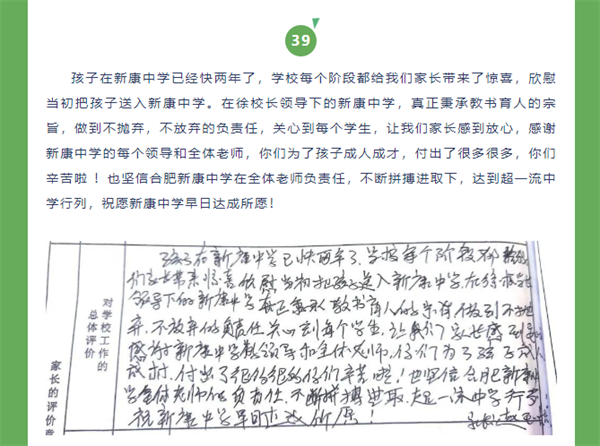 39
孩子在新康中学已经快两年了，学校每个阶段都给我们家长带来了惊喜，欣慰
当初把孩子送入新康中学。在徐校长领导下的新康中学，真正秉承教书育人的宗
旨，做到不抛弃，不放弃的负责任，关心到每个学生，让我们家长感到放心，感谢
新康中学的每个领导和全体老师，你们为了孩子成人成才，付出了很多很多，你们
辛苦啦！也坚信合肥新康中学在全体老师负责任，不断拼搏进取下，达到超一流中
学行列，祝愿新康中学早日达成所愿！
对学校工作的
总体评价
家长的评价意
孩子在新康中学已快两年了，学校每个阶段都给我
们家长带来惊喜欣慰当初把孩子送入新康中学在徐校长
领导下的新康中学真正秉承教书育人的宗旨做到不抛
弃，不放弃的负责任关心到每个学生，让我们家长感到
感谢新康中学领导和全体老师，你们为了孩子成人
成材，付出了很多很多你们辛苦啦！也坚信合肥新康
学全体老师负责任，不断拼搏进取，超一流中学行列
祝新康中学早日达成所愿！